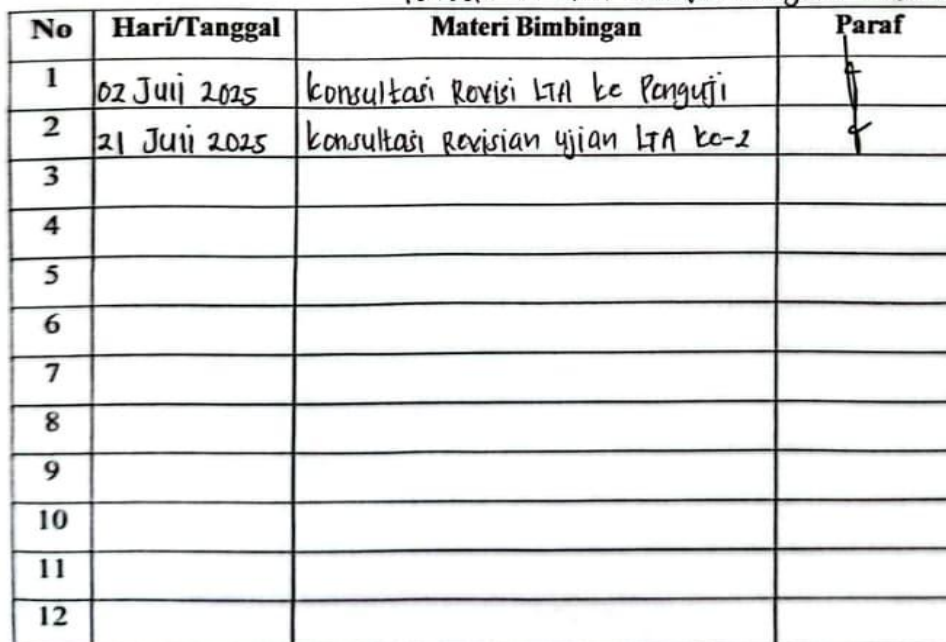 No Hari/Tanggal Materi Bimbingan Paraf
1 02 Juli 2025 konsultasi Revisi LTA ke Penguji
2 21 Juli 2025 konsultasi Revisian ujian LTA ke-2
3
4
5
6
7
8
9
10
11
12